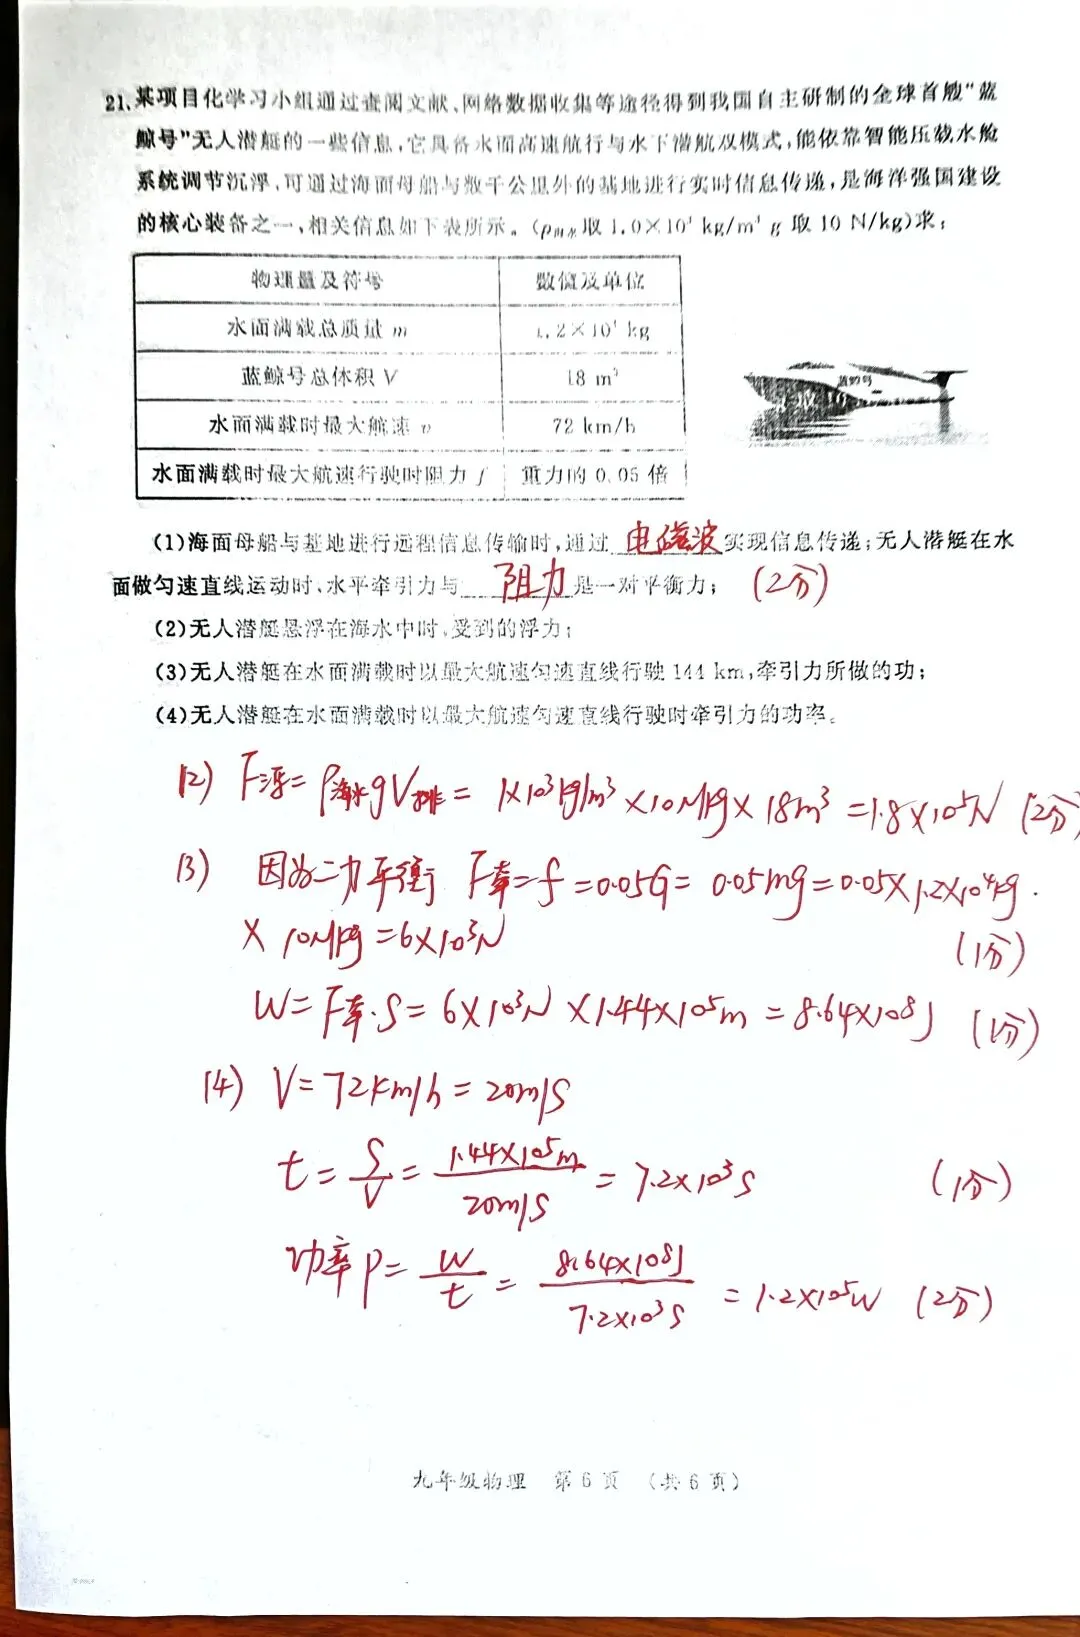 21.某项目化学习小组通过查阅文献、网络数据收集等途径得到我国自主研制的全球首艘“蓝
鲸号”无人潜艇的一些信息,它具备水面高速航行与水下潜航双模式,能依靠智能压载水舱
系统调节沉浮,可通过海面母船与数千公里外的基地进行实时信息传递,是海洋强国建设
的核心装备之一,相关信息如下表所示。(ρ海水取1.0×10³ kg/m³ g取10 N/kg)求:
物理量及符号 数值及单位
水面满载总质量 m 1.2×10⁴ kg
蓝鲸号总体积 V 18 m³
水面满载时最大航速 v 72 km/h
水面满载时最大航速行驶时阻力 f 重力的 0.05 倍
蓝鲸号
(1)海面母船与基地进行远程信息传输时,通过 电磁波 实现信息传递;无人潜艇在水
面做匀速直线运动时,水平牵引力与 阻力 是一对平衡力; (2分)
(2)无人潜艇悬浮在海水中时,受到的浮力;
(3)无人潜艇在水面满载时以最大航速匀速直线行驶 144 km,牵引力所做的功;
(4)无人潜艇在水面满载时以最大航速匀速直线行驶时牵引力的功率。
(2) F浮=ρ海水gV排=1×10³kg/m³×10N/kg×18m³=1.8×10⁵N (2分)
(3) 因为二力平衡 F牵=f=0.05G=0.05mg=0.05×1.2×10⁴kg
×10N/kg=6×10³N (1分)
W=F牵·S=6×10³N×1.44×10⁵m=8.64×10⁸J (1分)
(4) V=72km/h=20m/s
t=S/V=1.44×10⁵m/20m/s=7.2×10³s (1分)
功率P=W/t=8.64×10⁸J/7.2×10³s=1.2×10⁵W (2分)
九年级物理 第6页 (共6页)